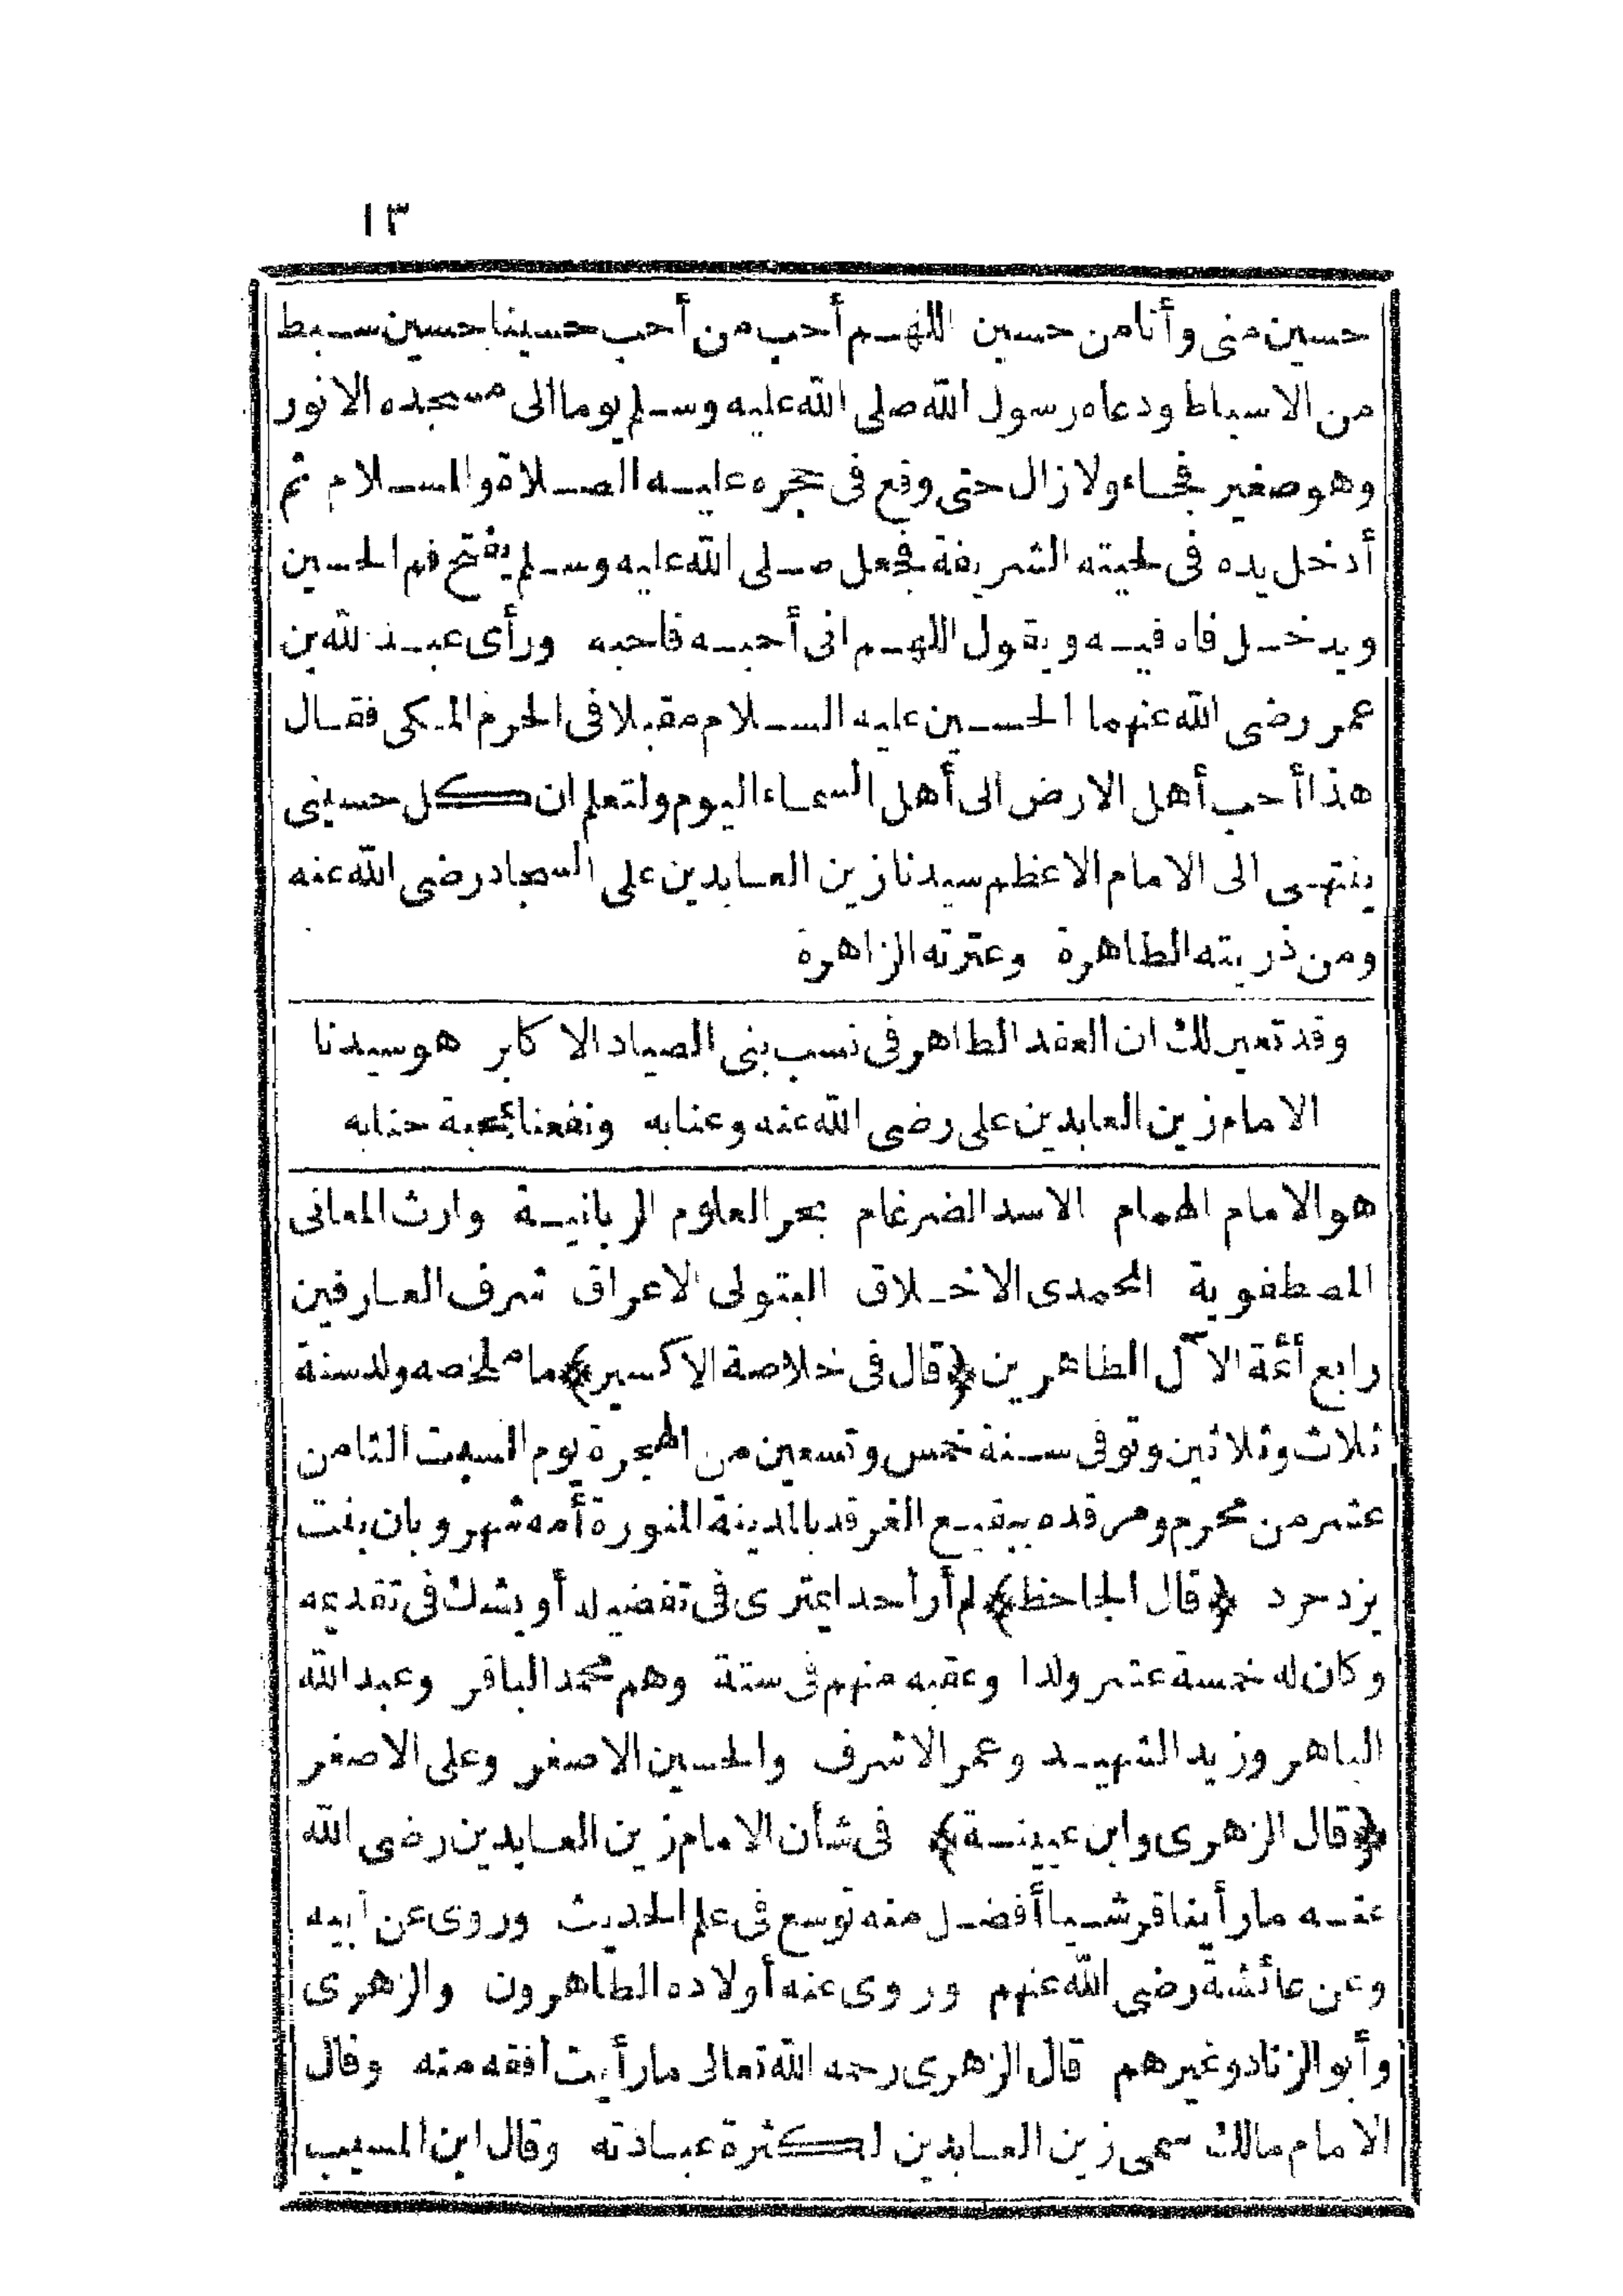 ١٣
حسين مني وأنا من حسين اللهم أحب من أحب حسينا حسين سبط
من الاسباط ودعاه رسول الله صلى الله عليه وسلم يوما الى مسجده الانور
وهو صغير فجاء ولا زال حتى وقع فى حجره عليه الصلاة والسلام ثم
أدخل يده فى لحيته الشريفة فجعل صلى الله عليه وسلم يفتح فم الحسين
ويدخل فاه فيه ويقول اللهم انى أحبه فاحبه ورأى عبد الله بن
عمر رضى الله عنهما الحسين عليه السلام مقبلا فى الحرم المكى فقال
هذا أحب أهل الارض الى أهل السماء اليوم ولتعلم ان كل حسينى
ينتهى الى الامام الاعظم سيدنا زين العابدين على السجاد رضى الله عنه
ومن ذريته الطاهرة وعترته الزاهرة
وقد تعين لك ان العقد الطاهر فى نسب بنى الصياد الاكابر هو سيدنا
الامام زين العابدين على رضى الله عنه وعنابه ونفعنا بمحبة جنابه
هو الامام الهمام الاسد الضرغام بحر العلوم الربانية وارث المعانى
المصطفوية المحمدى الاخلاق البتولى الاعراق شرف العارفين
رابع أئمة الآل الطاهرين ﴿قال فى خلاصة الاكسير﴾ ما ملخصه ولد سنة
ثلاث وثلاثين وتوفى سنة خمس وتسعين من الهجرة يوم السبت الثامن
عشر من محرم ومرقده ببقيع الغرقد بالمدينة المنورة أمه شهر وبان بنت
يزدجرد ﴿قال الجاحظ﴾ لم أر أحدا يمترى فى تفضيله أو يشك فى تقديمه
وكان له خمسة عشر ولدا وعقبه منهم فى ستة وهم محمد الباقر وعبد الله
الباهر وزيد الشهيد وعمر الاشرف والحسين الاصغر وعلى الاصغر
﴿قال الزهرى وابن عيينة﴾ فى شأن الامام زين العابدين رضى الله
عنه ما رأينا قرشيا أفضل منه توسع فى علم الحديث وروى عن أبيه
وعن عائشة رضى الله عنهم وروى عنه أولاده الطاهرون والزهرى
وأبو الزناد وغيرهم قال الزهرى رحمه الله تعالى ما رأيت أفقه منه وقال
الامام مالك سمى زين العابدين لكثرة عبادته وقال ابن المسيب